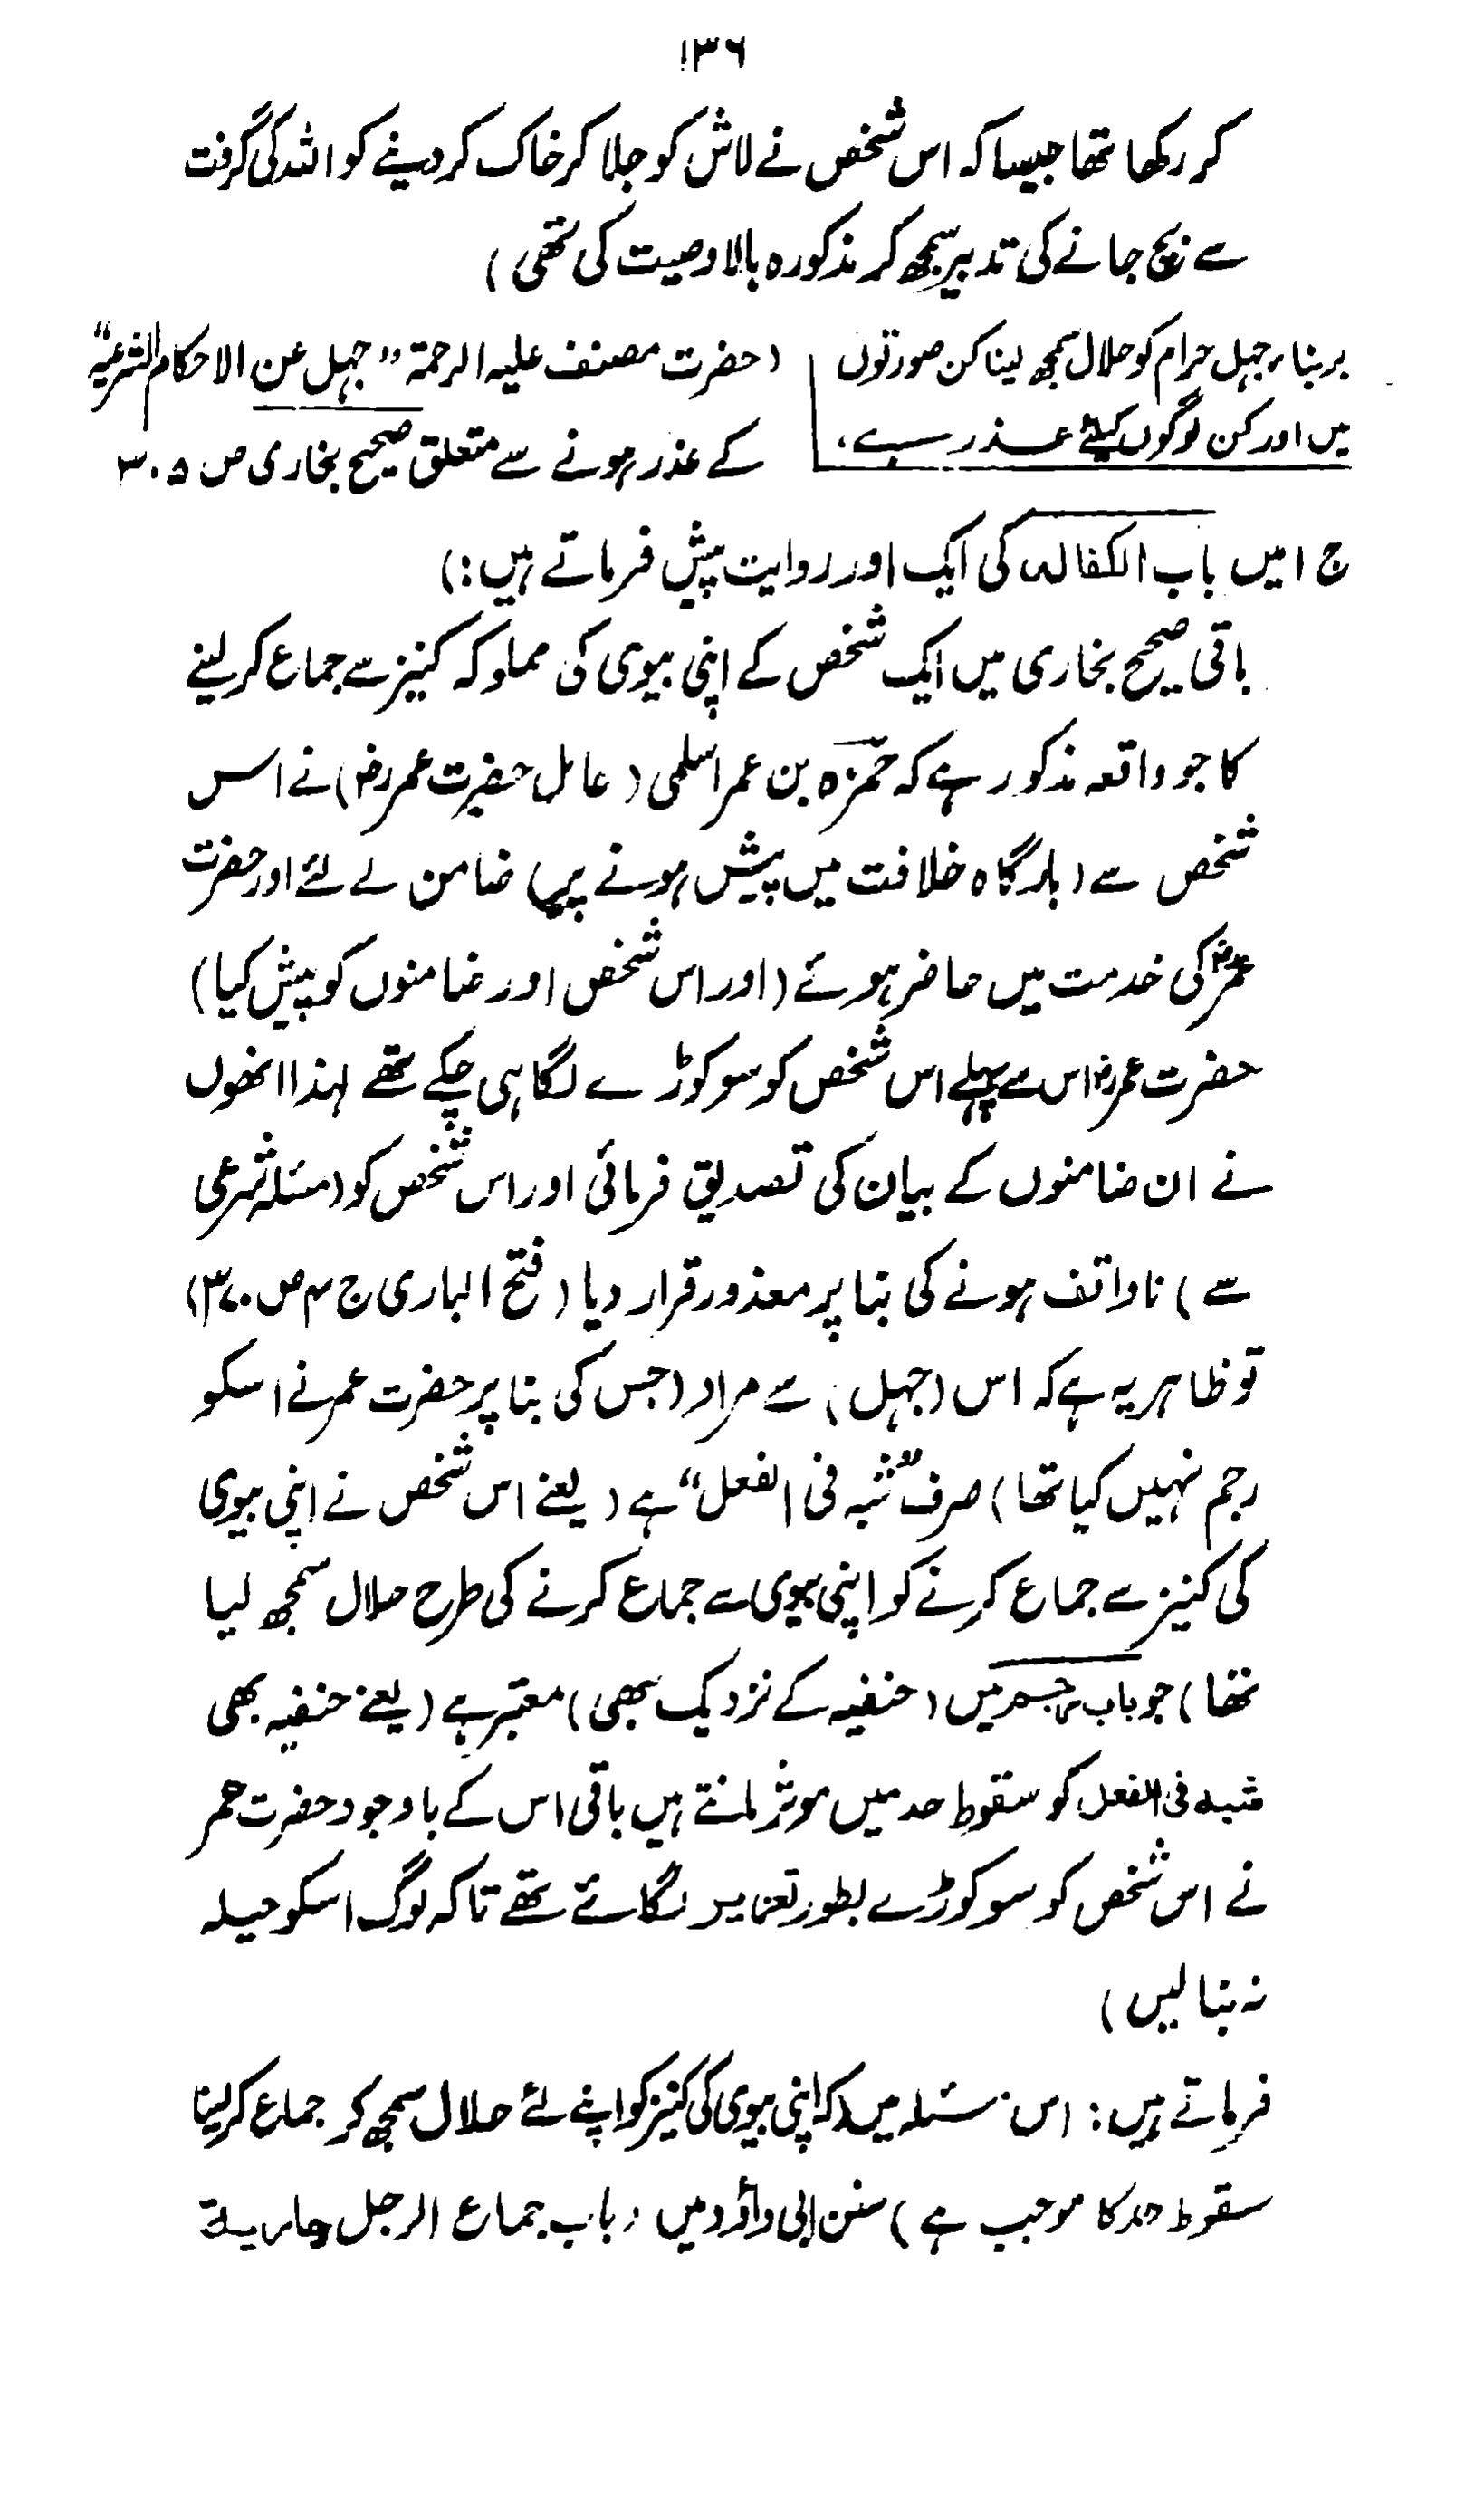 ۱۳۶
کر رکھا تھا جیسا کہ اس شخص نے لاش کو جلا کر خاک کر دینے کو اللہ کی گرفت
سے بچ جانے کی تدبیر سمجھ کر مذکورہ بالا وصیت کی تھی )
بر بناء جہل حرام کو حلال سمجھ لینا کن صورتوں
میں اور کن لوگوں کیلئے عذر ہے،
( حضرت مصنف علیہ الرحمۃ “ جہل عن الاحکام الشرعیۃ “
کے عذر ہونے سے متعلق صحیح بخاری ص ۳۰۵
ج ۱ میں باب الکفالہ کی ایک اور روایت پیش فرماتے ہیں : )
باقی صحیح بخاری میں ایک شخص کے اپنی بیوی کی مملوکہ کنیز سے جماع کر لینے
کا جو واقعہ مذکور ہے کہ حمزہ بن عمر اسلمی ( عامل حضرت عمر رض ) نے اس
شخص سے ( بارگاہ خلافت میں پیش ہونے پر ) ضامن لے لئے اور حضرت
عمرؓ کی خدمت میں حاضر ہوئے ( اور اس شخص اور ضامنوں کو پیش کیا )
حضرت عمرؓ اس سے پہلے اس شخص کو سو کوڑے لگا ہی چکے تھے لہذا انھوں
نے ان ضامنوں کے بیان کی تصدیق فرمائی اور اس شخص کو ( مسئلہ شرعی
سے ) ناواقف ہونے کی بنا پر معذور قرار دیا ( فتح الباری ج ۴ ص ۳۷۰ )
تو ظاہر یہ ہے کہ اس ( جہل ) سے مراد ( جس کی بنا پر حضرت عمر نے اسکو
رجم نہیں کیا تھا ) صرف “ شبہ فی الفعل “ ہے ( یعنے اس شخص نے اپنی بیوی
کی کنیز سے جماع کرنے کو اپنی بیوی سے جماع کرنے کی طرح حلال سمجھ لیا
تھا ) جو باب میں ( حنفیہ کے نزدیک بھی ) معتبر ہے ( یعنے حنفیہ بھی
شبہ فی الفعل کو سقوط حد میں موثر مانتے ہیں باقی اس کے باوجود حضرت عمر
نے اس شخص کو سو کوڑے بطور تعزیر لگائے تھے تاکہ لوگ اسکو حیلہ
نہ بنا لیں )
فرماتے ہیں : اس مسئلہ میں ( کہ اپنی بیوی کی کنیز کو اپنے لئے حلال سمجھ کر جماع کر لینا
سقوط حد کا موجب ہے ) سنن ابی داؤد میں ( باب جماع الرجل جاریۃ